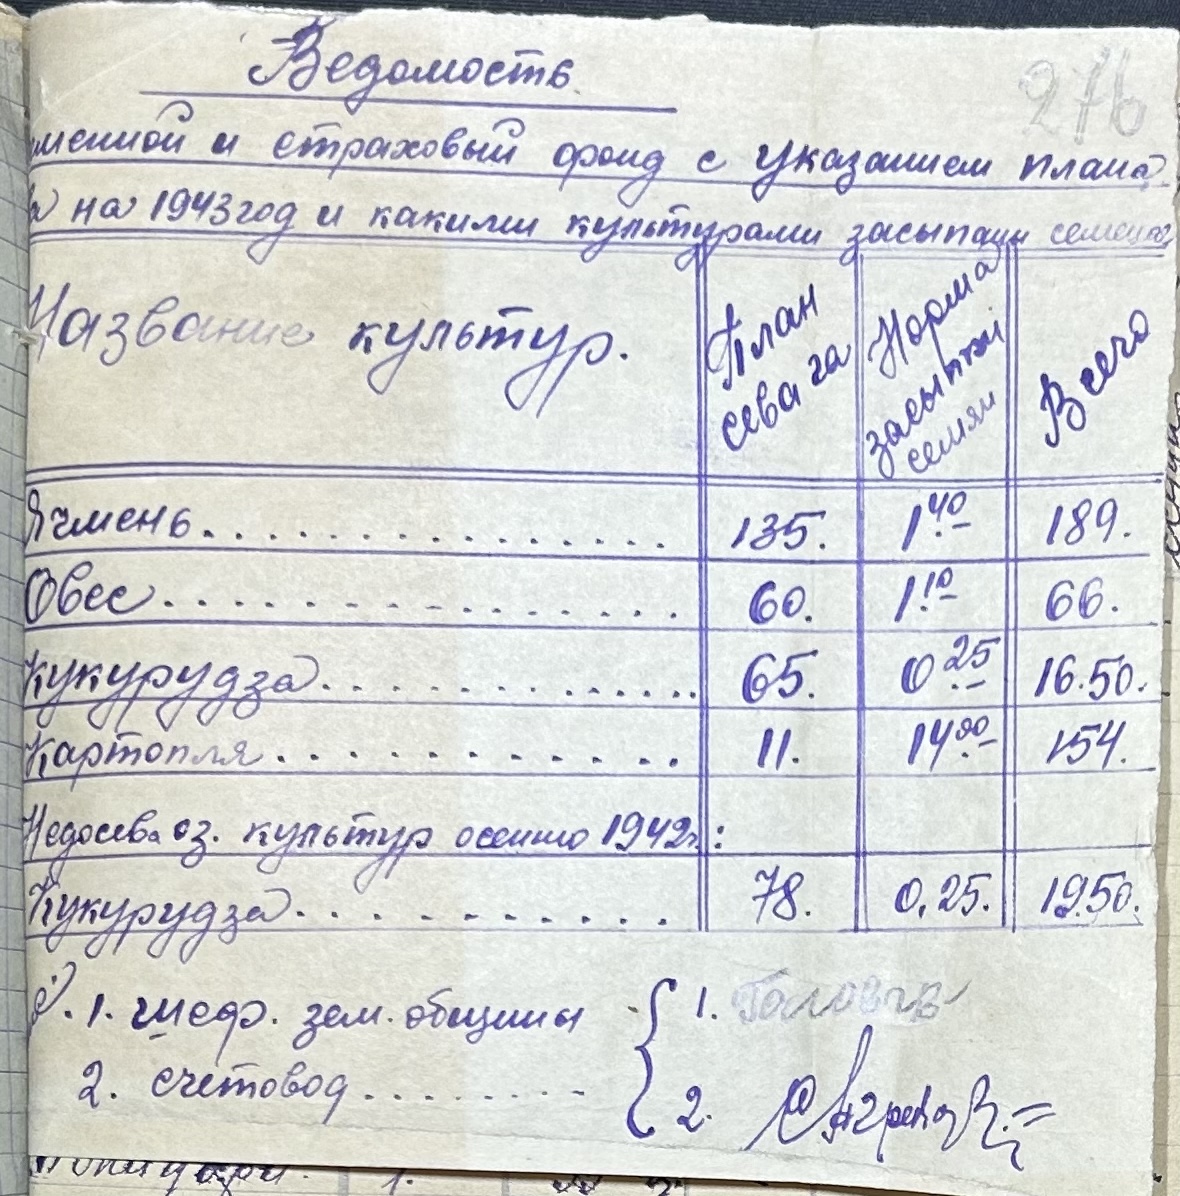 Ведомость
276
еменной и страховый фонд с указанием плана
а на 1943 год и какими культурами засыпаны
Название культур.
План сева га
Норма засыпки семян
Всего
Ячмень. 135. 1.40 189.
Овес 60. 1.10 66.
Кукурудза 65. 0.25 16.50.
Картопля 11. 14.00 154.
Недосев оз. культур осенью 1942г.:
Кукурудза 78. 0,25. 19.50.
1. шеф. зем. общины 1.
2. счетовод 2.